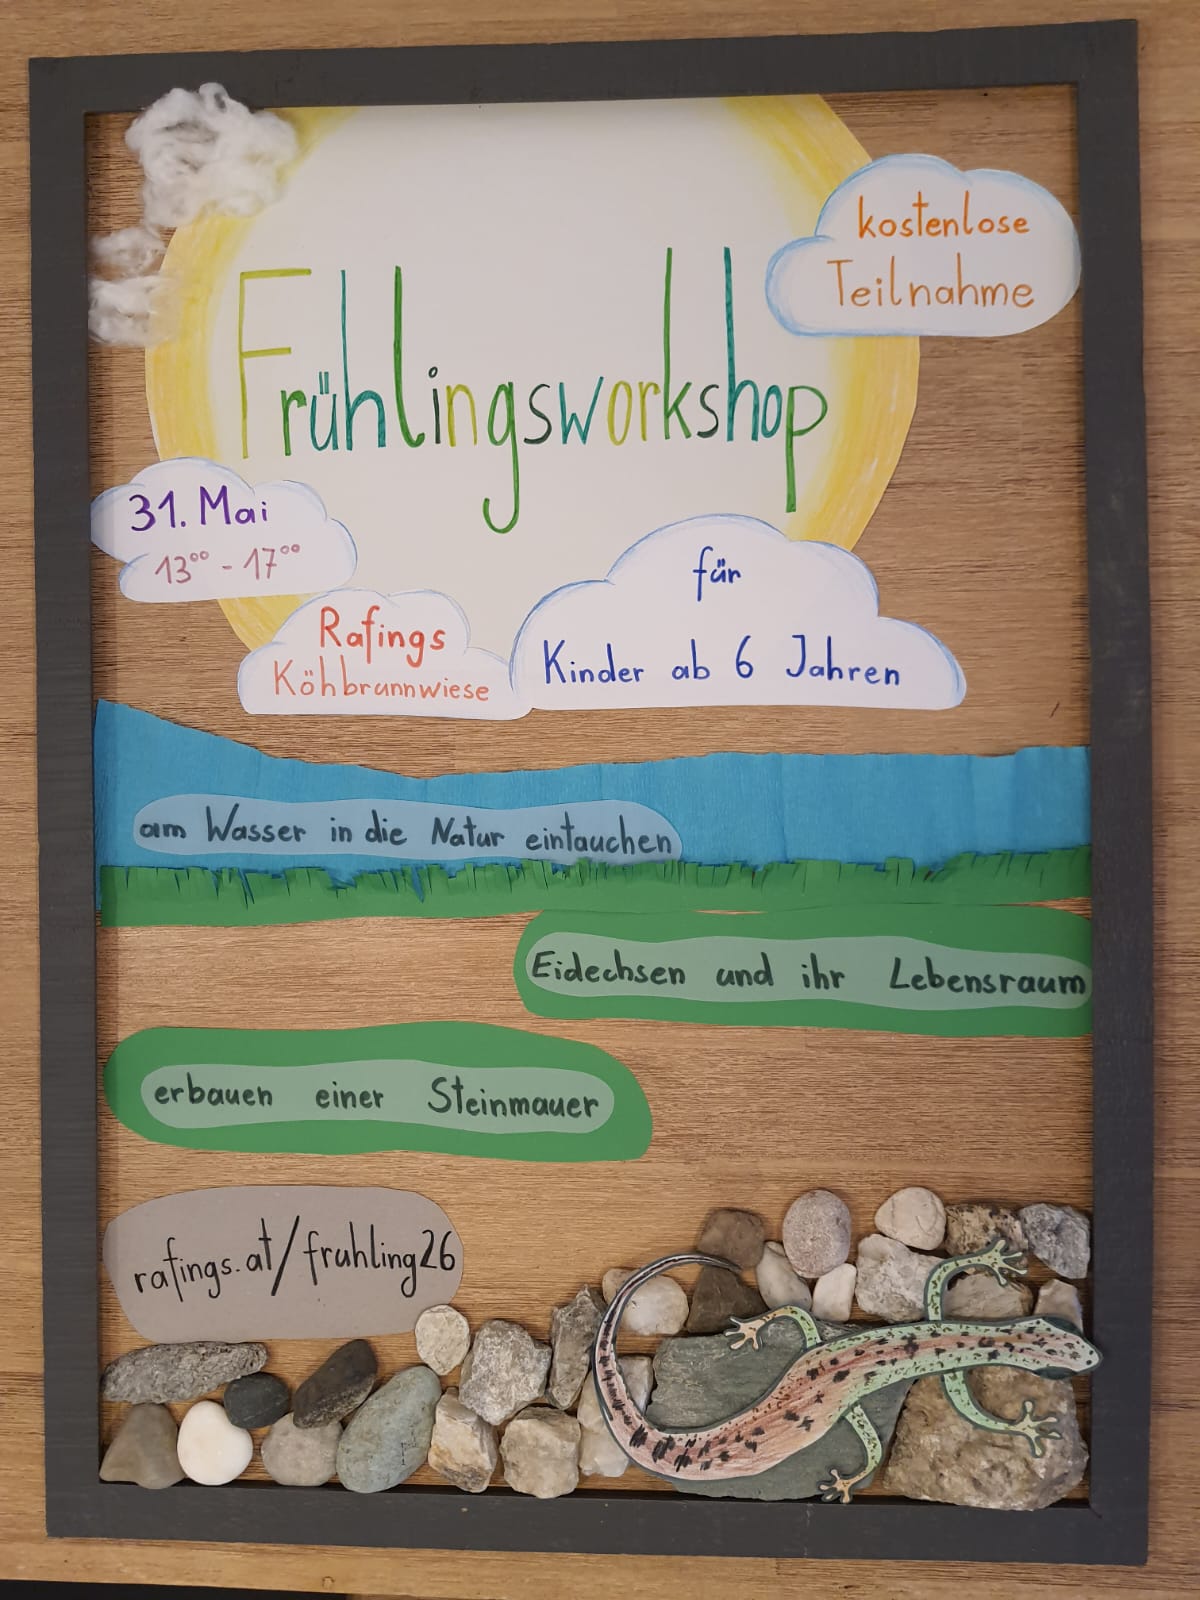 kostenlose
Teilnahme
Frühlingsworkshop
31. Mai
13⁰⁰ - 17⁰⁰
Rafings
Köhbrunnwiese
für
Kinder ab 6 Jahren
am Wasser in die Natur eintauchen
Eidechsen und ihr Lebensraum
erbauen einer Steinmauer
rafings.at/fruhling26